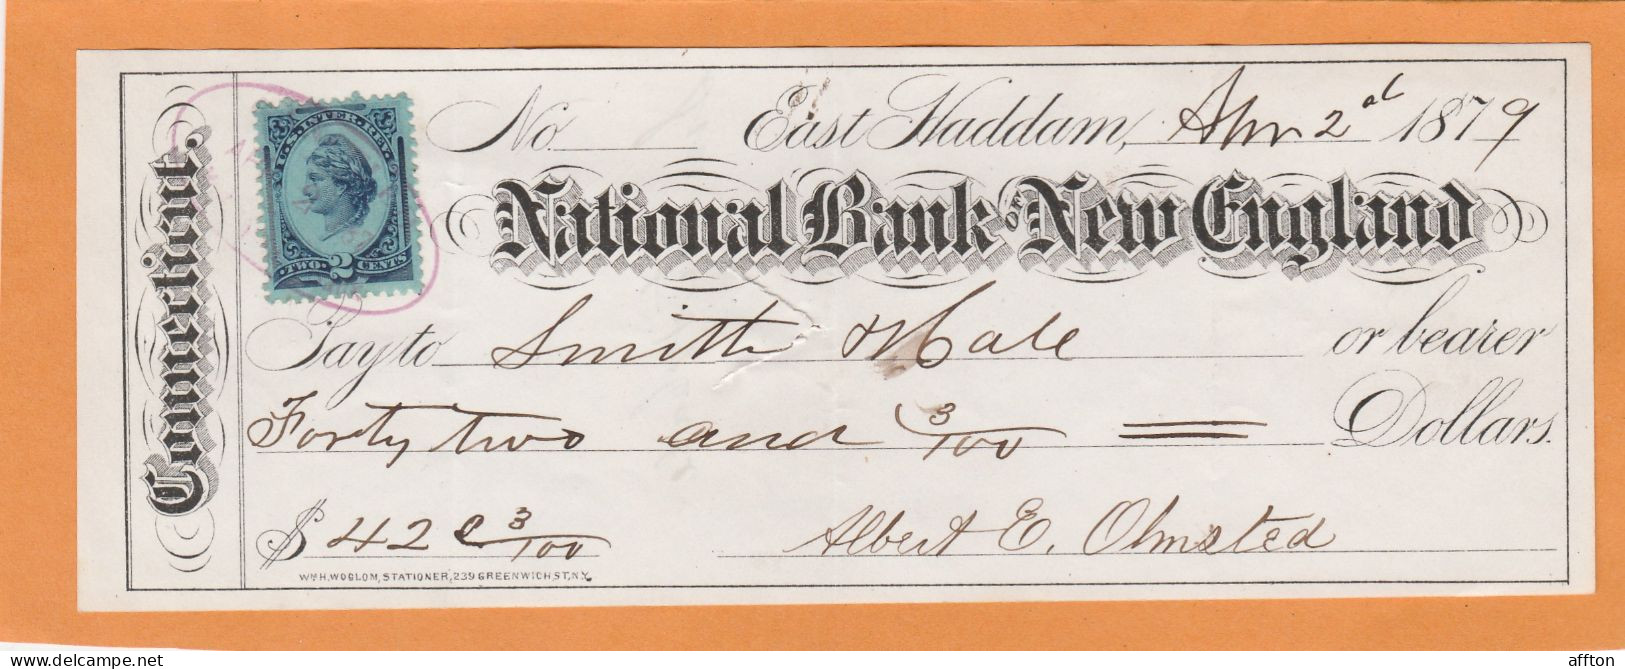 Connecticut.
U.S. INTER. REV.
TWO 2 CENTS
No East Haddam, Apr 2nd 1879
National Bank OF New England
Pay to Smith & Hale or bearer
Forty two and 3/100 Dollars.
$ 42 & 3/100 Albert E. Olmsted
WM H. WOGLOM, STATIONER, 239 GREENWICH ST, N.Y.
delcampe.net
affton